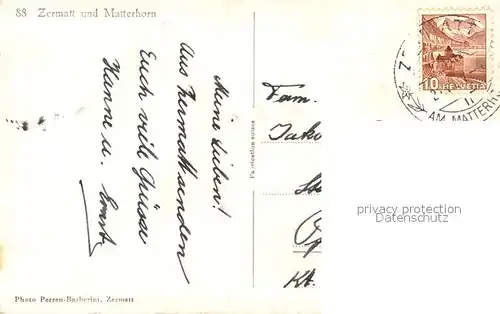 88 Zermatt und Matterhorn
Meine Lieben!
Aus Zermatt senden
Euch viele Grüsse
Hanne u. Ernst
Fabrication suisse
Fam.
Jako
Kt.
10 HELVETIA
AM MATTERH
privacy protection
Datenschutz
Photo Perren-Barberini, Zermatt